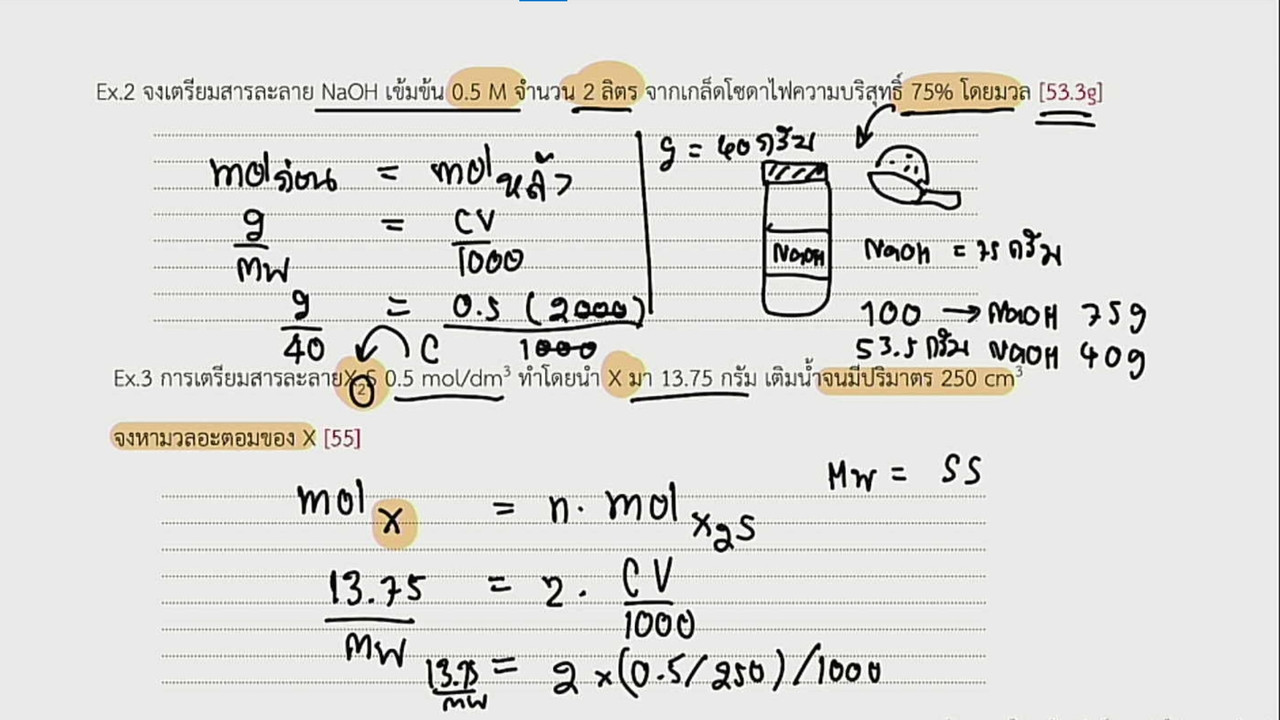 Ex.2 จงเตรียมสารละลาย NaOH เข้มข้น 0.5 M จำนวน 2 ลิตร จากเกล็ดโซดาไฟความบริสุทธิ์ 75% โดยมวล [53.3g]
mol ก่อน = mol หลัง
g/MW = CV/1000
g/40 = 0.5 (2000)/1000
g = 40 กรัม
NaOH
NaOH = 75 กรัม
100 → NaOH 75g
53.5 กรัม NaOH 40g
C
Ex.3 การเตรียมสารละลายX₂S 0.5 mol/dm³ ทำโดยนำ X มา 13.75 กรัม เติมน้ำจนมีปริมาตร 250 cm³
จงหามวลอะตอมของ X [55]
MW = 55
mol X = n. mol X₂S
13.75/MW = 2. CV/1000
13.75/MW = 2 x(0.5/250)/1000